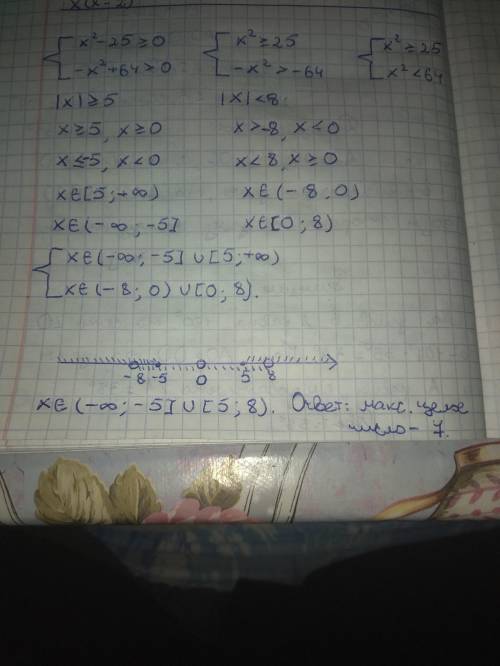 x(x-2)
{ x²-25≥0 { x²≥25 { x²≥25
{ -x²+64>0 { -x²>-64 { x²<64
|x|≥5 |x|<8
x≥5, x≥0 x>-8, x<0
x≤-5, x<0 x<8, x≥0
x∈[5;+∞) x∈(-8,0)
x∈(-∞;-5] x∈[0;8)
{ x∈(-∞;-5]∪[5;+∞)
{ x∈(-8;0)∪[0;8).
-8 -5 0 5 8
x∈(-∞;-5]∪[5;8). Ответ: макс. целое
число - 7.